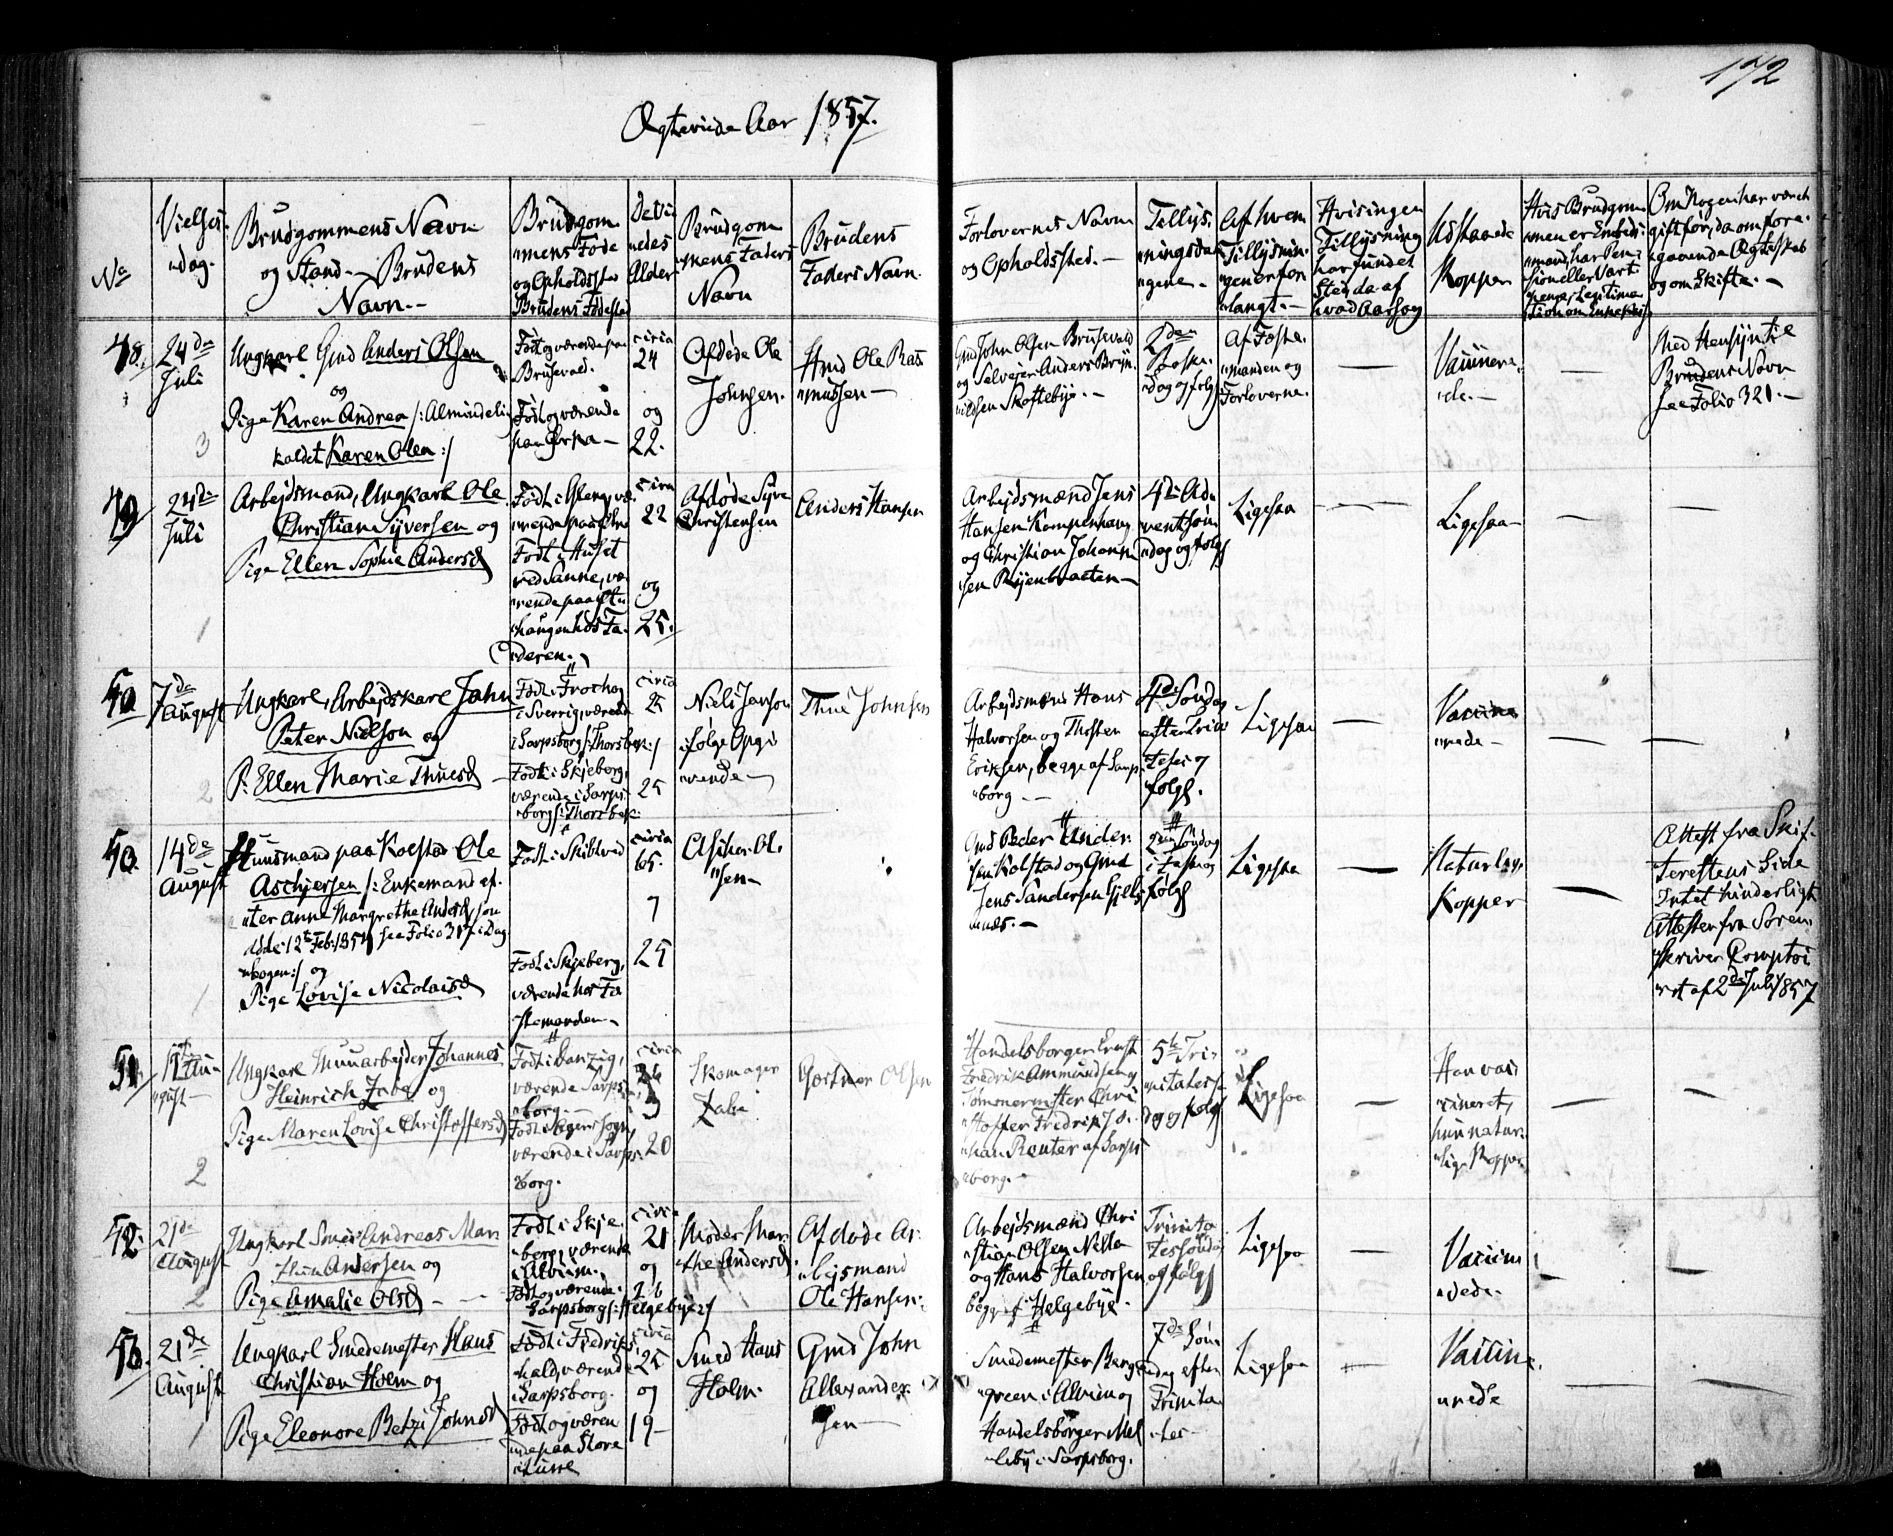 172
Ægteviede Aar 1857.
No
Vielses
dag.
Brudgommens Navn
og Stand. Brudens
Navn.
Brudgom
mens Føde
og Opholdssted
Brudens Fødested
Alder
Brudgom
mens Faders
Navn
Brudens
Faders Navn.
Forlovernes Navn
og Opholdssted.
Tillys
ningsda
gene.
Af hvem
Tillysnin
gen er for
langt.
Hvis ingen
Tillysning
har fundet
Sted da af
hvad Aarsag
Udstaaede
Kopper
Hvis Brudgom
men er Embeds
mand, har Pen
sion eller Vart
Om Nogen har været
gift før, da om fore
gaaende Ægteskab
og om Skifte.
48.
24de
Juli
3
Ungkarl Gmd Anders Olsen
og
Pige Karen Andrea /: Almindeli
kaldet Karen Olea :/
Født og værende paa
Brusevold.
Født og værende
paa
circa
24
og
22.
Afdøde Ole
Johnsen.
Hmd Ole Ras
mussen
Gmd John Olsen Brusevold
og Selveier Anders Bryn
ildsen Skoftebye.
2den
Paaske
dag og følg
Af Fæste
manden og
Forloverne.
Vaccinere
de.
Med Hensyn til
Brudens Navn
see Folio 321.
49
24de
Juli
1
Arbejdsmand, Ungkarl Ole
Christian Syversen og
Pige Ellen Sophie Andersd
Født i Huset
ved Sanne, væ
rende paa
haugen hos Fa
deren.
circa
22
og
25.
Afdøde Syve
Christensen
Anders Hansen
Arbejdsmænd Jens
Hansen Kampenhaug
og Christian Johann
sen
4de Ad
ventsøn
dag og følg
Ligesaa
Ligesaa
7de
August
2
Ungkarl, Arbejdskarl John
Peter Nielson og
P. Ellen Marie Thuesd
i Sverrig, værende
i Sarpsborg /: Thorsbek :/
Født i Skjeberg,
værende i Sarps
borg /: Thorsbek
circa
25
25
Niels Janson
ifølge Opgi
vende
Thue Johnsen
Arbejdsmænd Hans
Halvorsen og Thosten
Eriksen, begge af Sarps
borg
4de Søndag
efter Trini
tatis og
følg.
Ligesaa
Vaccine
rede
50.
14de
August
1
Huusmand paa Kolstad Ole
Aschjersen /: Enkemand ef
ter Anne Margrethe Andersd, som
døde 12te Feb. 1857 see Folio 317 i Dag
bogen :/ og
Pige Lovise Nicolaisd
Født i Skibtved
Født i Skjeberg,
værende hos Fæ
stemanden
circa
65.
25
Aschier Ol
sen
Gmd Peder Ander
sen Kolstad og Gmd
Jens Sandersen
næs.
2den Søndag
i Faste og
følg
Ligesaa
Naturlige
Kopper
Attest fra Skif
teretten i Side
Intet hinderligt
Attester fra Soren
skriver Comptoi
ret af 2de July 1857
51.
August
2
Ungkarl Muurarbejder Johannes
Heinrich Zabe og
Pige Maren Lovise Christoffersd
Født i Danzig,
værende Sarps
borg.
værende i Sarps
borg.
circa
20
Skomager
Zabe
Gartner Olsen
Handelsborger Ernst
Fredrik Ammundsen og
Tømmermester Chri
stoffer Fredrik Jo
han Reuter af Sarps
borg.
5te Tri
nitatessøn
dag og følg
Ligesaa
Han vac
cineret,
hun natur
lige Kopper
52.
21de
August
2
Ungkarl Smed Andreas Mar
thin Andersen og
Pige Amalie Olsd
Født i Skje
berg, værende
i Alvim.
Født og værende
Sarpsborg /: Helgebye :/
circa
21
og
26
Moder Mar
the Andersd.
Afdøde Ar
bejdsmand
Ole Hansen.
Arbejdsmænd Chri
stian Olsen
og Hans Halvorsen
begge af Helgebye.
Trinita
tessøndag
og følg
Ligesaa
53.
21de
August
1
Ungkarl Smedemester Hans
Christian Holm og
Pige Eleonore Betzi Johnsd
Født i Fredriks
hald, værende
i Sarpsborg.
Født og væren
de paa Store
Tune
circa
25
og
19
Smed Hans
Holm.
Gmd John
Allexander
sen
Smedemester Berg
green i Alvim og
Handelsborger Mel
leby i Sarpsborg.
7de Søn
dag efter
Trinita
tes
Ligesaa
Vaccine
rede